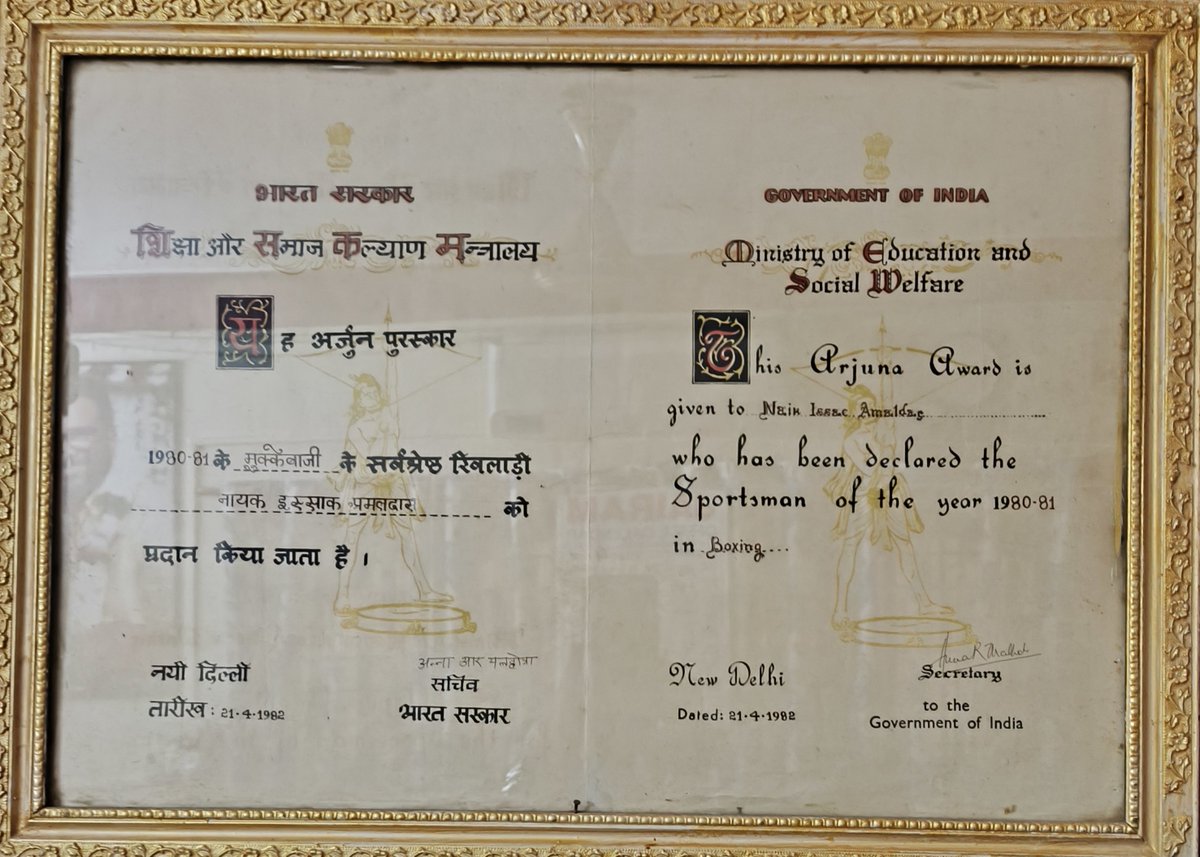 भारत सरकार
शिक्षा और समाज कल्याण मन्त्रालय
यह अर्जुन पुरस्कार
1980-81 के मुक्केबाजी के सर्वश्रेष्ठ खिलाड़ी
नायक इस्साक अमलदास को
प्रदान किया जाता है ।
नयी दिल्ली
तारीख : 21·4·1982
अन्ना आर मलहोत्रा
सचिव
भारत सरकार
GOVERNMENT OF INDIA
Ministry of Education and
Social Welfare
This Arjuna Award is
given to Naik Issac Amaldas
who has been declared the
Sportsman of the year 1980-81
in Boxing
New Delhi
Dated: 21·4·1982
Anna R Malhotra
Secretary
to the
Government of India